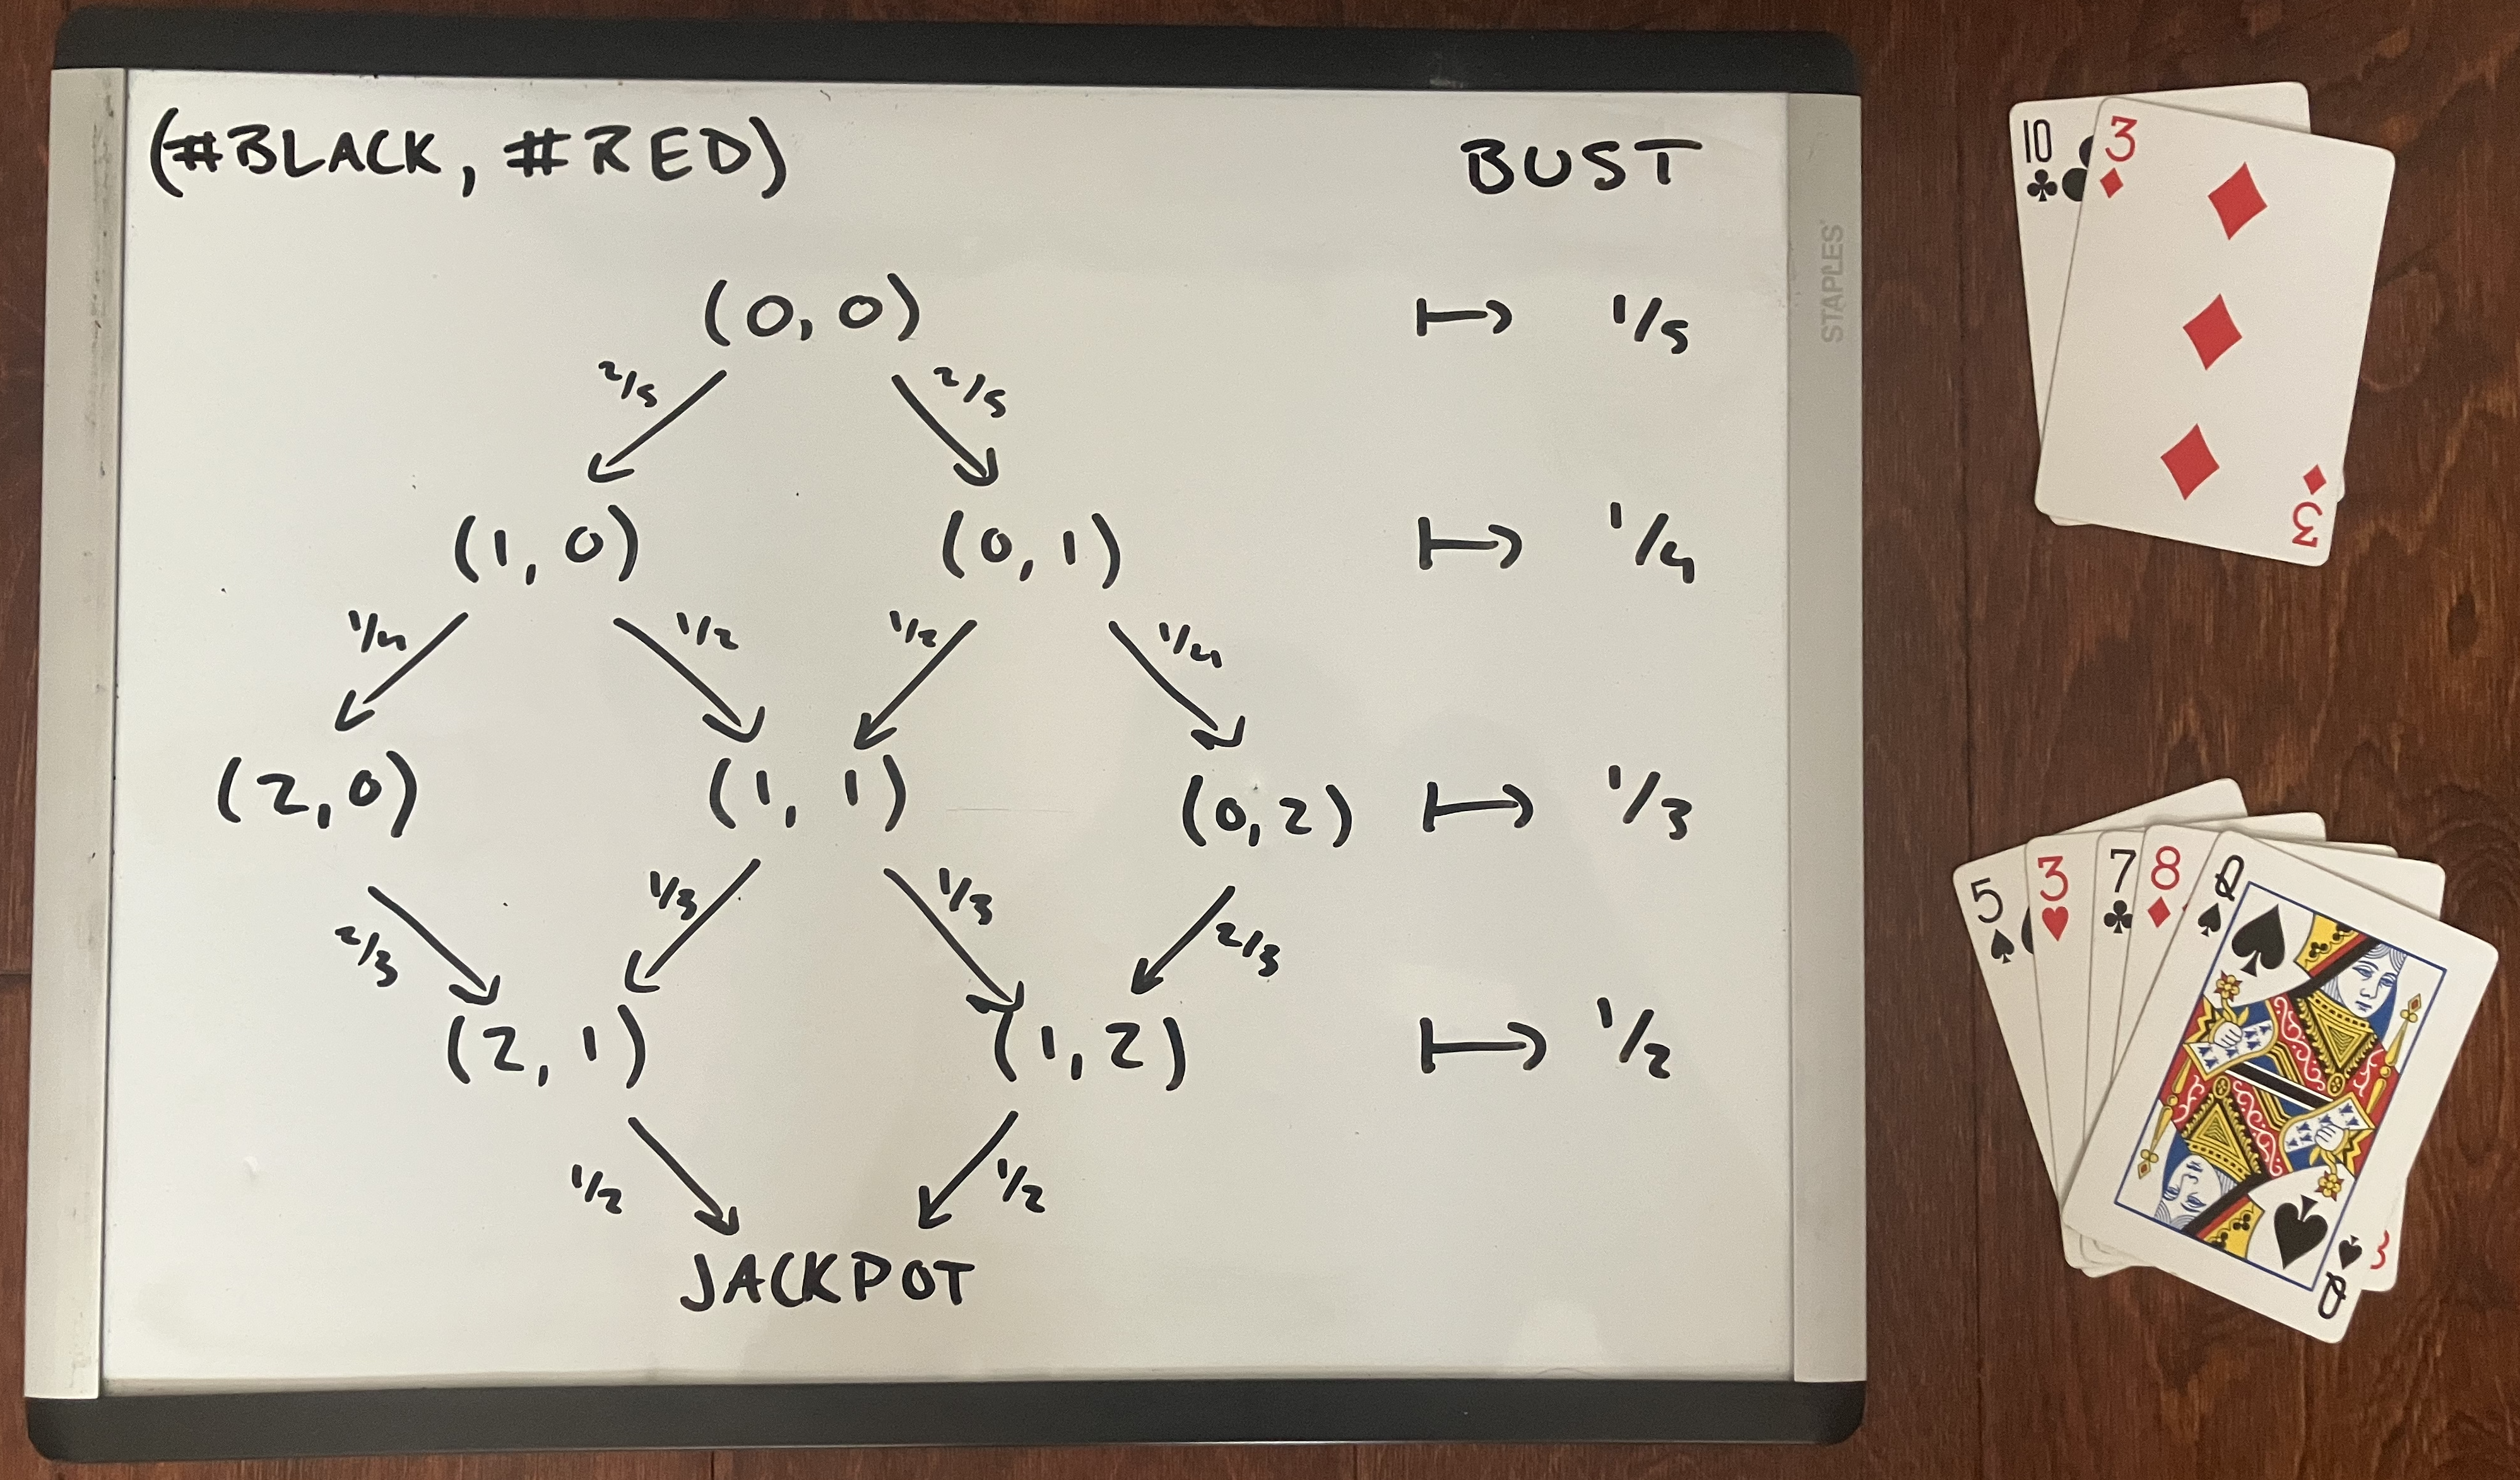 (#BLACK, #RED) BUST
(0,0) ↦ 1/5
2/5 2/5
(1,0) (0,1) ↦ 1/4
1/4 1/2 1/2 1/4
(2,0) (1,1) (0,2) ↦ 1/3
2/3 1/3 1/3 2/3
(2,1) (1,2) ↦ 1/2
1/2 1/2
JACKPOT
STAPLES
10 3
3
5 3 7 8 Q
3
Q